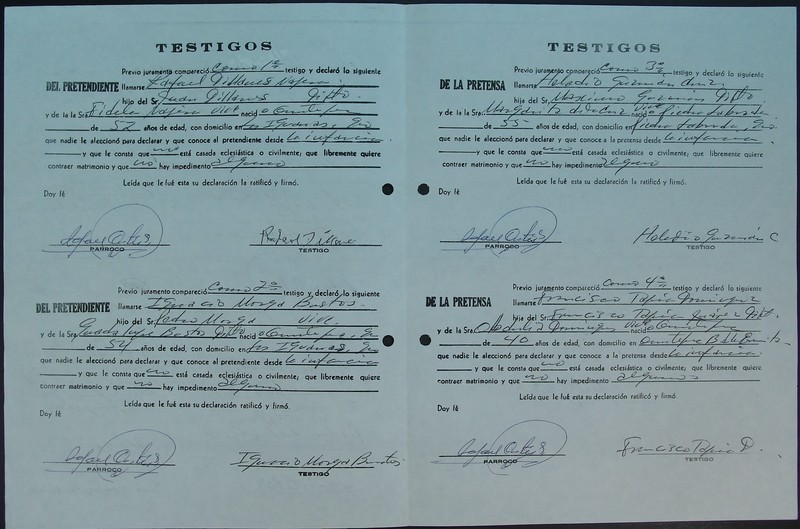 TESTIGOS
Previo juramento compareció Como 1º testigo y declaró lo siguiente
DEL PRETENDIENTE llamarse Rafael Najera
hijo del Sr. Juan Difto.
y de la Sra. Fidela Najera Vive nació
de 52 años de edad, con domicilio en Los Iguanas, Gro
que nadie le aleccionó para declarar y que conoce al pretendiente desde la infancia
y que le consta que no está casada eclesiástica o civilmente; que libremente quiere
contraer matrimonio y que no hay impedimento alguno
Leída que le fué esta su declaración la ratificó y firmó.
Doy fé
PARROCO TESTIGO
Previo juramento compareció Como 2º testigo y declaró lo siguiente
DEL PRETENDIENTE llamarse Ignacio Monga Bustos.
hijo del Sr. Pedro Monga Vive.
y de la Sra. Guadalupe Bustos Difto nació
de 54 años de edad, con domicilio en Los Iguanas, Gro
que nadie le aleccionó para declarar y que conoce al pretendiente desde la infancia
y que le consta que no está casada eclesiástica o civilmente; que libremente quiere
contraer matrimonio y que no hay impedimento alguno
Leída que le fué esta su declaración ratificó y firmó.
Doy fé
Ignacio Monga Bustos
PARROCO TESTIGO
TESTIGOS
Previo juramento compareció Como 3º testigo y declaró lo siguiente
DE LA PRETENSA llamarse Heladio Guzmán Cruz
hijo del Sr. Maximino Guzman Difto
y de la Sra. Margarita Vive nació Piedra Labrada
de 55 años de edad, con domicilio en Piedra Labrada, Gro
que nadie le aleccionó para declarar y que conoce a la pretensa desde la infancia.
y que le consta que no está casada eclesiástica o civilmente; que libremente quiere
contraer matrimonio y que no hay impedimento alguno
Leída que le fué esta su declaración la ratificó y firmó.
Doy fé
Heladio Guzmán C
PARROCO TESTIGO
Previo juramento compareció Como 4º testigo y declaró lo siguiente
DE LA PRETENSA llamarse Francisco Tapia Dominguez
hijo del Sr. Francisco Tapia Difto.
y de la Sra. Dominguez Vive nació
de 40 años de edad, con domicilio en
que nadie le aleccionó para declarar y que conoce a la pretensa desde la infancia
y que le consta que no está casada eclesiástica o civilmente; que libremente quiere
contraer matrimonio y que no hay impedimento alguno
Leída que le fué esta su declaración la ratificó y firmó.
Doy fé
Francisco Tapia D.
PARROCO TESTIGO